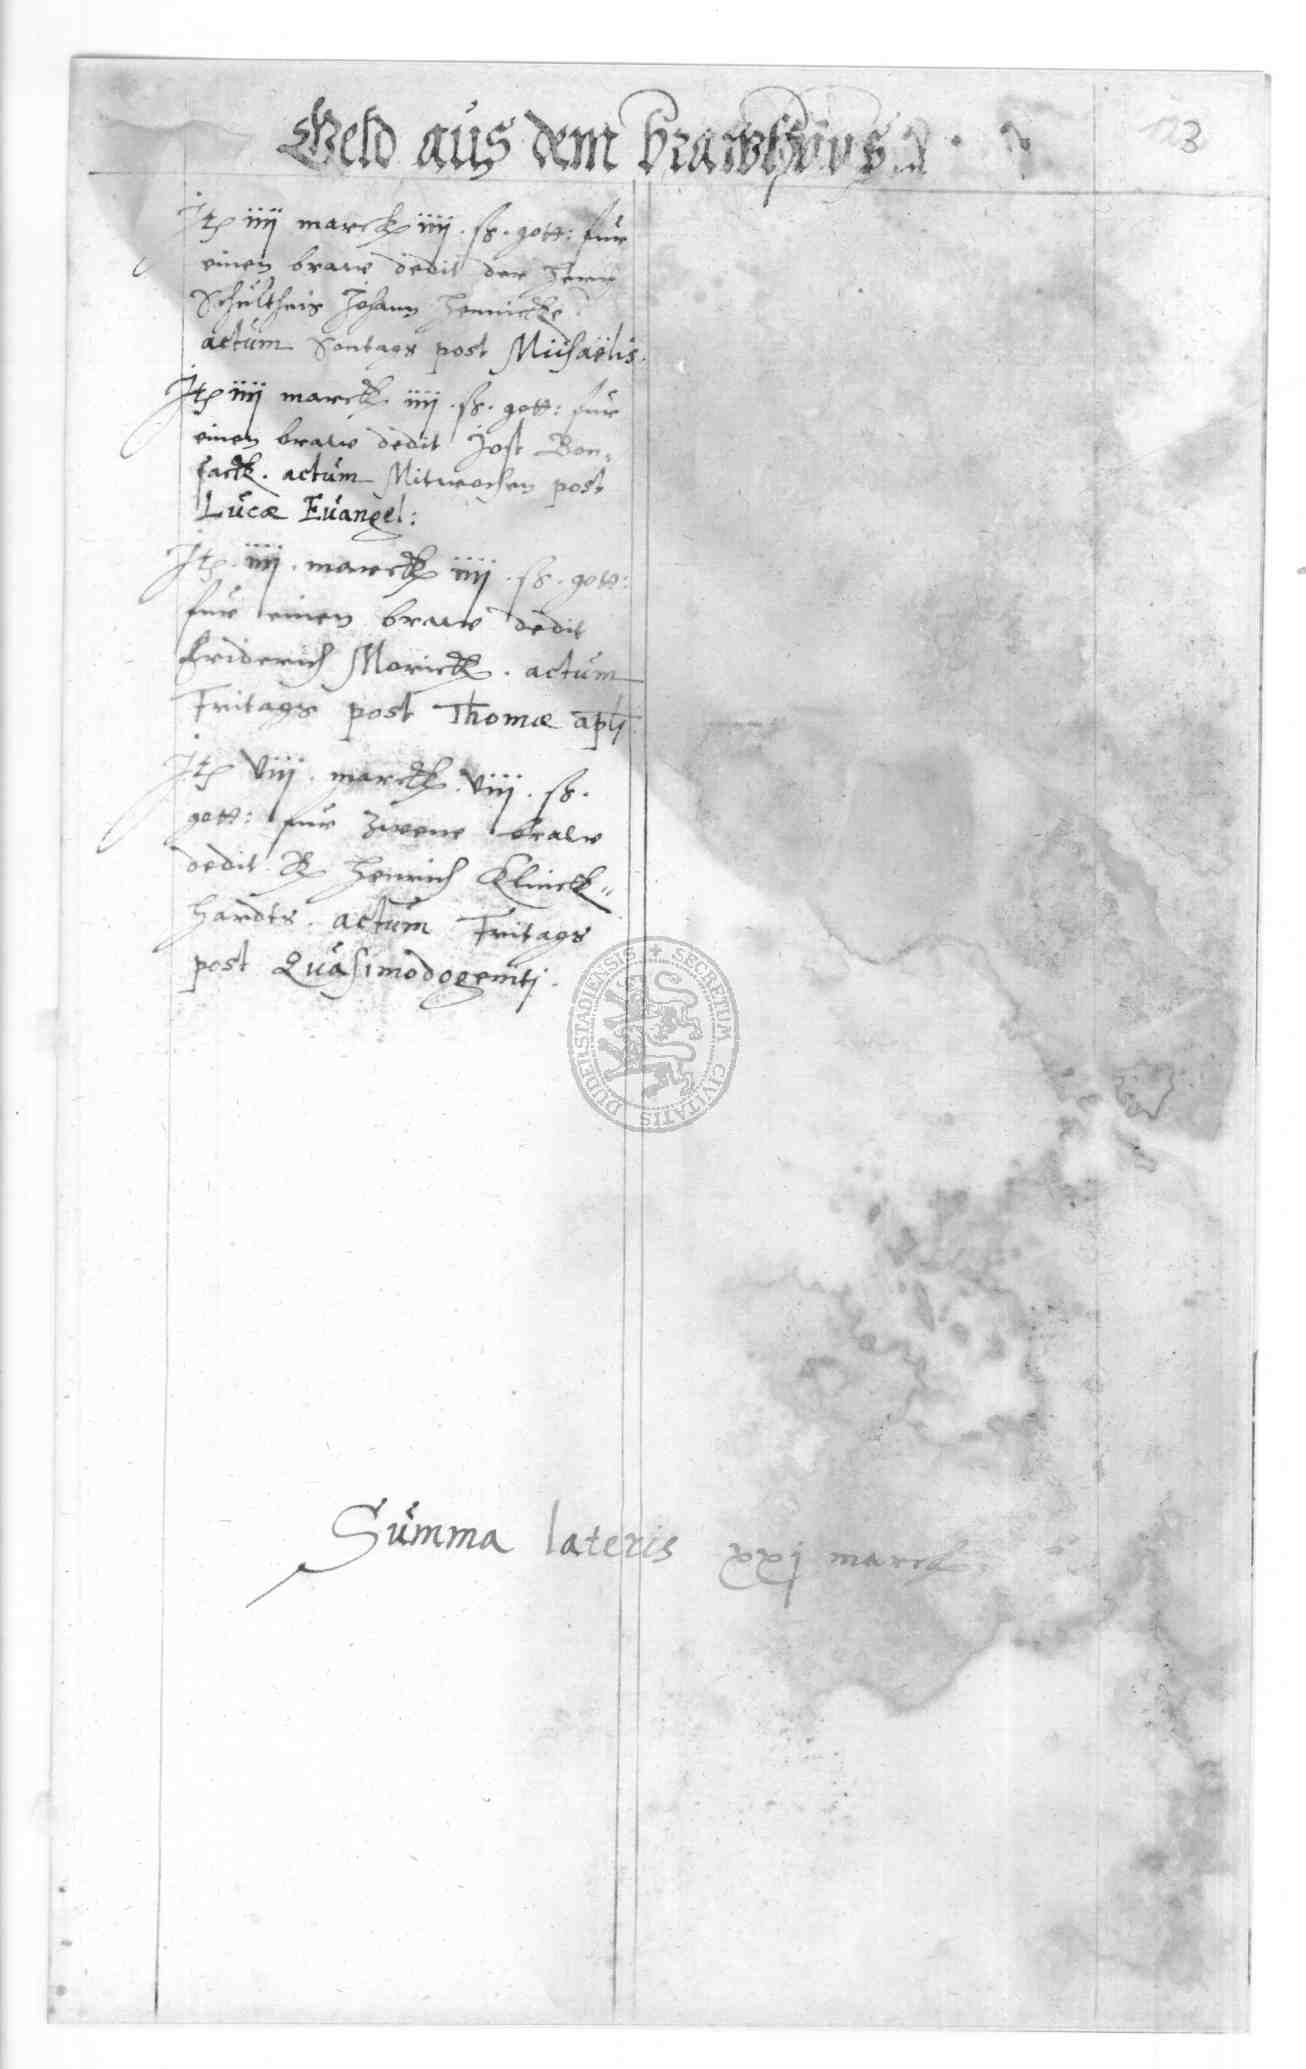 Geld aus dem brawhaus
123
Jt iiij marck iiij . ß . gott: fur
einen braw dedit der Herr
Schultheis Johann Hennicke
actum Sontags post Michaëlis.
Jt iiij marck iiij . ß . gott: fur
einen braw dedit Jost Bon=
sack . actum Mitwochen post
Lucæ Euangel:
Jt . iiij . marck iiij . ß . gott:
fur einen braw dedit
Friderich Morick . actum
Fritags post Thomæ apli
Jt viij . marck . viij . ß .
gott: fur zwene braw
dedit Henrich Klinck=
hardts . actum Fritags
post Quasimodogeniti .
SECRETUM CIVITATIS DUDERSTADIENSIS
Summa lateris xxj marck